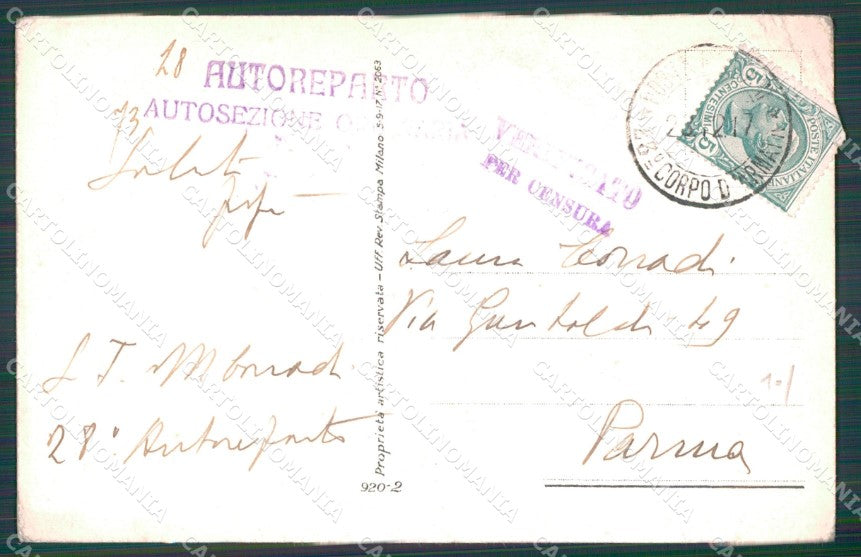 28
AUTOREPARTO
13
AUTOSEZIONE
Saluti
VERIFICATO
PER CENSURA
CORPO D'ARMATA
POSTE ITALIANE
CENTESIMI
5
Laura Corradi
Via Garibaldi 49
Parma
S. T. M Corradi
28° Autoreparto
Proprietà artistica riservata - Uff. Rev. Stampa Milano 5-9-17 N° 2063
920-2
CARTOLINOMANIA